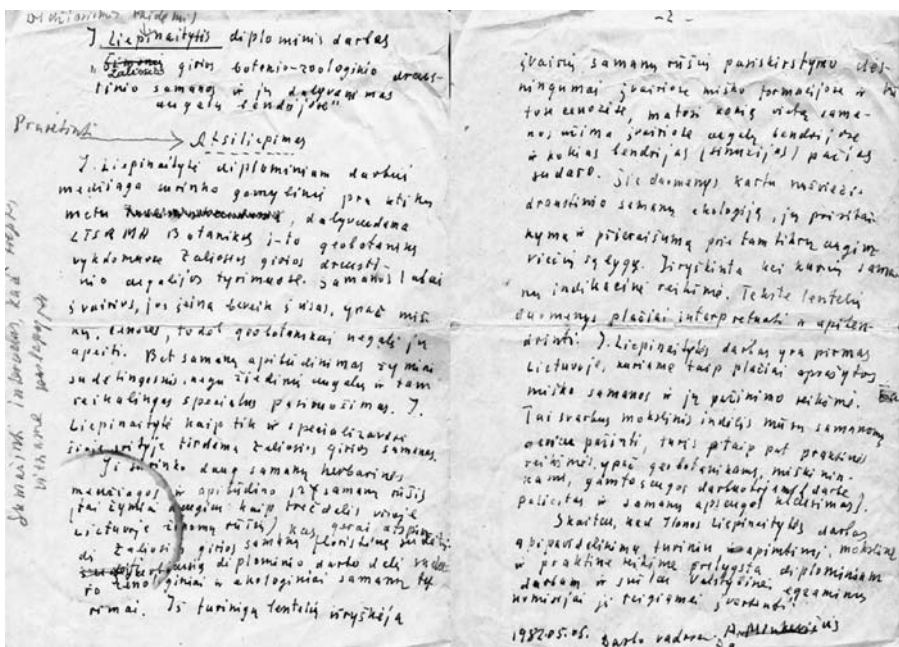 Didžiosiomis raidėmis)
I. Liepinaitytės diplominis darbas
„Žaliosios girios botanio-zoologinio draus-
tinio samanos ir jų dalyvavimas
augalų bendrijose"
Praretinti
Atsiliepimas
I. Liepinaitytė diplominiam darbui
medžiagą surinko gamyboje
metu, dalyvaudama
LTSR MA Botanikos i-to geobotanikų
vykdomuose Žaliosios girios drausti-
nio augalijos tyrimuose. Samanos labai
įvairios, jos įeina beveik į visas, ypač miš-
kų, cenozes, todėl geobotanikai negali jų
apeiti. Bet samanų apibūdinimas žymiai
sudėtingesnis, negu žiedinių augalų ir tam
reikalingas specialus pasiruošimas. I.
Liepinaitytė kaip tik ir specializavosi
šioje srityje tirdama Žaliosios girios samanas.
Ji surinko daug samanų herbarinės
medžiagos ir apibūdino samanų rūšis
(tai žymiai daugiau kaip trečdalis visoje
Lietuvoje žinomų rūšių), kas gerai atspin-
di Žaliosios girios samanų floristinę sudėtį.
diplominio darbo dalį
ro cenologiniai ir ekologiniai samanų ty-
rimai. Iš turiningų lentelių išryškėja
Sumažinti intervalus kad tilptų
viename puslapyje
-2-
įvairių samanų rūšių pasiskirstymo dės-
ningumai įvairiose miško formacijose ir
tose cenozėse, matosi kokią vietą sama-
nos užima įvairiose augalų bendrijose
ir kokias bendrijas (sinuzijas) pačios
sudaro. Šie duomenys kartu nušviečia
draustinio samanų ekologiją, jų prisitai-
kymą ir prieraišumą prie tam tikrų augim-
viečių sąlygų. Išryškinta kai kurių sama-
nų indikacinė reikšmė. Tekste lentelių
duomenys plačiai interpretuoti ir apiben-
drinti. I. Liepinaitytės darbas yra pirmas
Lietuvoje, kuriame taip plačiai aprašytos
miško samanos ir jų pažinimo reikšmė.
Tai svarbus mokslinis indėlis mūsų samanų
pažinti, turįs taip pat praktinės
reikšmės, ypač geobotanikams, miškinin-
kams, gamtosaugos darbuotojams (darbe
paliestas ir samanų apsaugos klausimas).
Skaitau, kad Ilonos Liepinaitytės darbas
apipavidalinimu, turiniu ir apimtimi, moksline
ir praktine reikšme prilygsta diplominiam
darbui ir siūlau valstybinei egzaminų
komisijai jį teigiamai įvertinti.
1982.05.05. Darbo vadovas A. Minkevičius